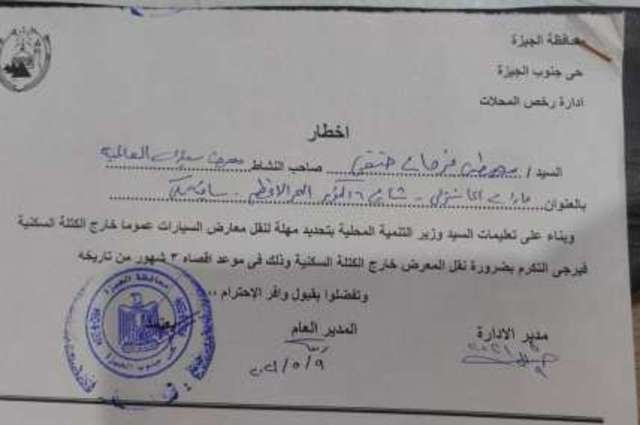 محافظة الجيزة
حى جنوب الجيزة
ادارة رخص المحلات
اخطار
السيد / مصطفى فرحات حنفى صاحب النشاط معرض سيارات العالمية
بالعنوان
وبناء على تعليمات السيد وزير التنمية المحلية بتحديد مهلة لنقل معارض السيارات عموما خارج الكتلة السكنية
فيرجى التكرم بضرورة نقل المعرض خارج الكتلة السكنية وذلك فى موعد اقصاه ٣ شهور من تاريخه
وتفضلوا بقبول وافر الإحترام ،،
مدير الادارة
المدير العام
يعتمد
٢٠٢١/٥/٩
محافظة الجيزة
حى جنوب الجيزة